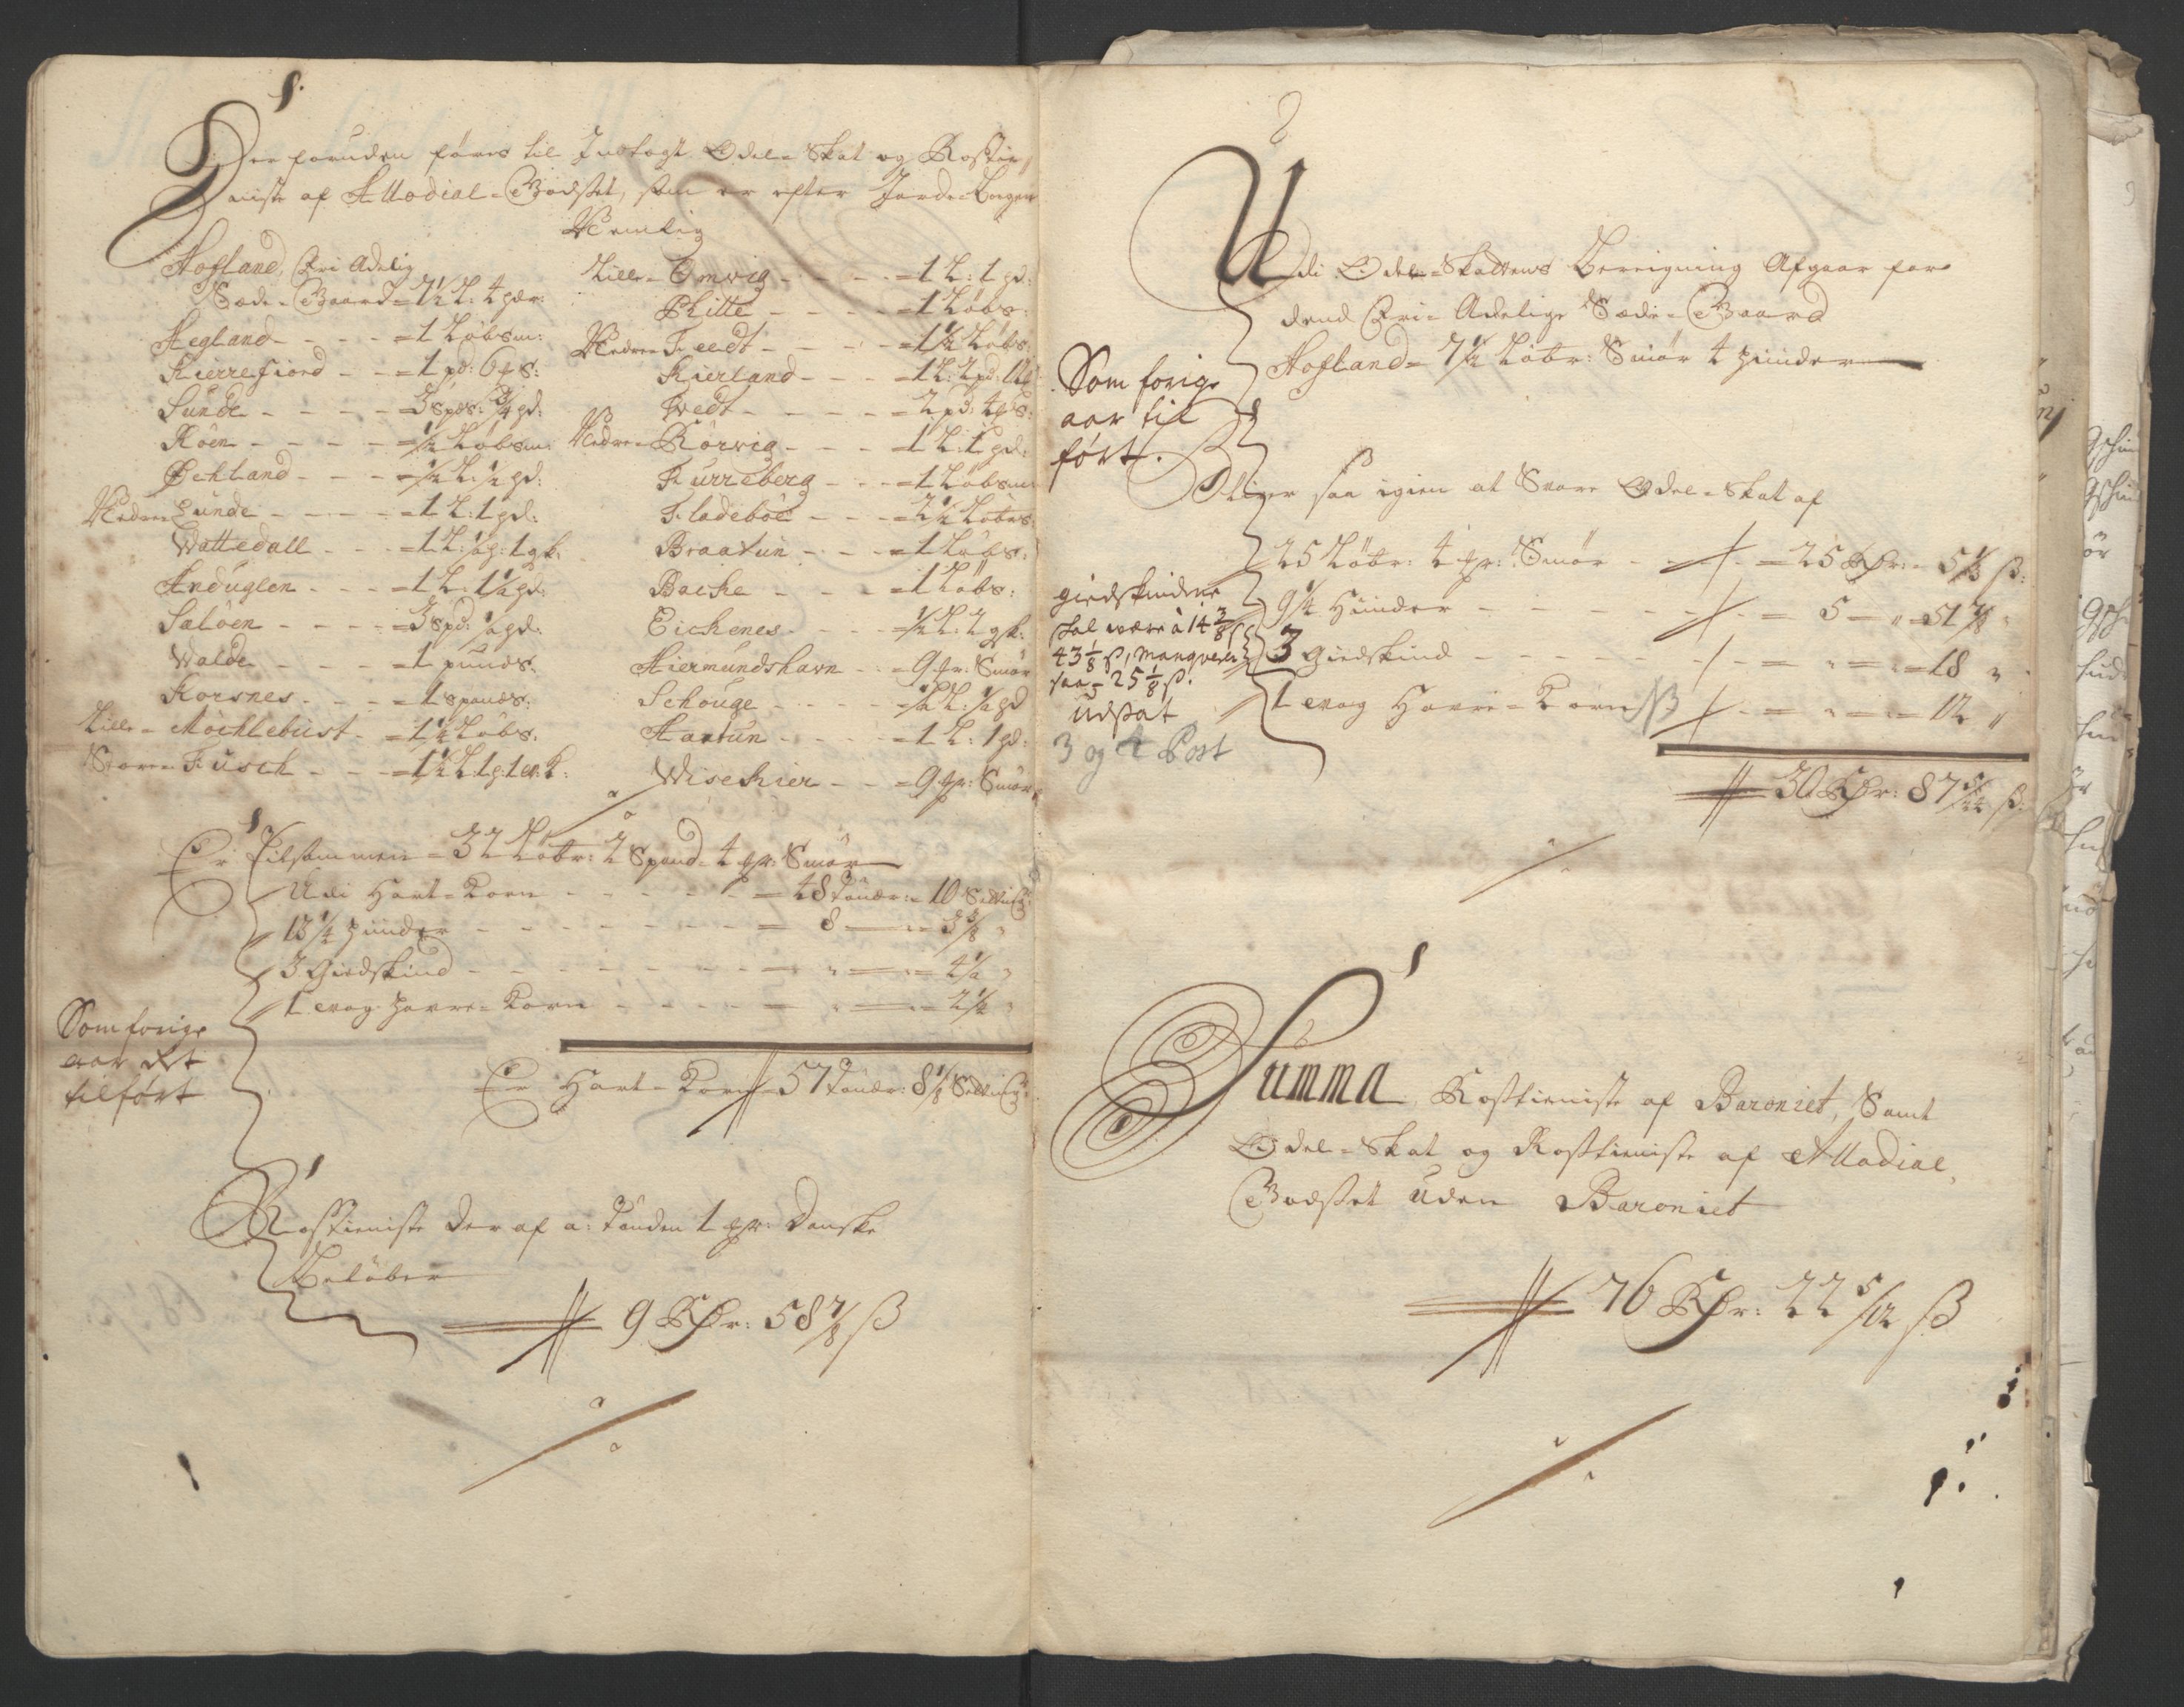 Der foruden föres til Indtægt Odel-Skat og Rostie
niste af Allodial-Godset, som er efter Jorde-Bogen
Nemlig
Hofland, Fri Adelig
Sæde-Gaard = 7½ L: 4 pdr:
Hegland - - - = 1 Löbsm:
Kierrefiord - - = 1 pd: 6
Sunde - - - -
Röen - - - - = ½ Löbsm:
Öckland - - - = ½ L: ½ pd:
Nedre Lunde - - - = 1 L: 1 pd:
Wattedall - - - = 1 L:
Anduglen - - - = 1 L: 1½ pd:
Salöen - - - - = 3 spd: ½ pd:
Walde - - - = 1 punds:
Korsnes - - - = 1 spands:
Lille-Möchlebust - = 1½ Löbs:
Store-Fusch - - - = 1½ L: 1 p:
Lille-Omvig - - - - = 1 L: 1 pd:
Rhitte - - - - = 1 Löbs:
Nedre-Feedt - - - - = 1½ Löbs:
Kierland - - - = 1 L: 2 pd:
Wedt - - - - = 2 pd:
Nedre-Rörvig - - - 1 L: 1 pd:
Furreberg - - - = 1 Löbsm
Fladeböe - - - = 2½ Löbs:
Braatun - - - = 1 Löbs:
Backe - - - = 1 Löbs:
Eickenes - - - = ½ L:
Hiermundshavn - - = 9 Smör
Schouge - - - - = ½ L: ½ pd
Haatun - - - - = 1 L: 1 pd:
Wisekier - - - = 9 Smör
Er Tilsammen = 32 Löbr: 2 Spand 4 Smör
Udi Hart-Korn - - - - - = 48 Tönder: 10
13¼ Hüuder - - - - - = 8 - 3⅜ "
3 Giedskind - - - - - = " = 4½ "
1 vog Havre-Korn - - - - = " = 2¼ "
Som forige
aar det
tilfört
Er Hart-Korn 57 Tönder: 8⅛
Rostieniste der af a: Tönden 1 Danske
Belöber
9 Rdr: 58⅞ ß
Udi Odel-Skattens Beregning Afgaar for
dend Fri-Adelige Sæde-Gaard
Hofland = 7½ Löbr: Smör 4 Hüuder
Som forige
aar til
fört.
Bliger saa igien at Svare Odel-Skat af
25 Löbr: 4 Smör - - = 25 Rdr: 5⅓ ß:
9¼ Hüuder - - - - - = 5 - " 51⅞ "
3 Giedskind - - - - - = " = 18 "
1 vog Havre-Korn - = " = 12 "
giedskindene
skal være à 14⅜ ß
43⅛ ß, manqverer
saa 25⅛ ß.
Udsat
3 og 4 Post
30 Rdr: 87 ß:
Summa Rostieniste af Baroniet, Samt
Odel-Skat og Rostieniste af Allodial,
Godset uden Baroniet
76 Rdr: 22 5/12 ß